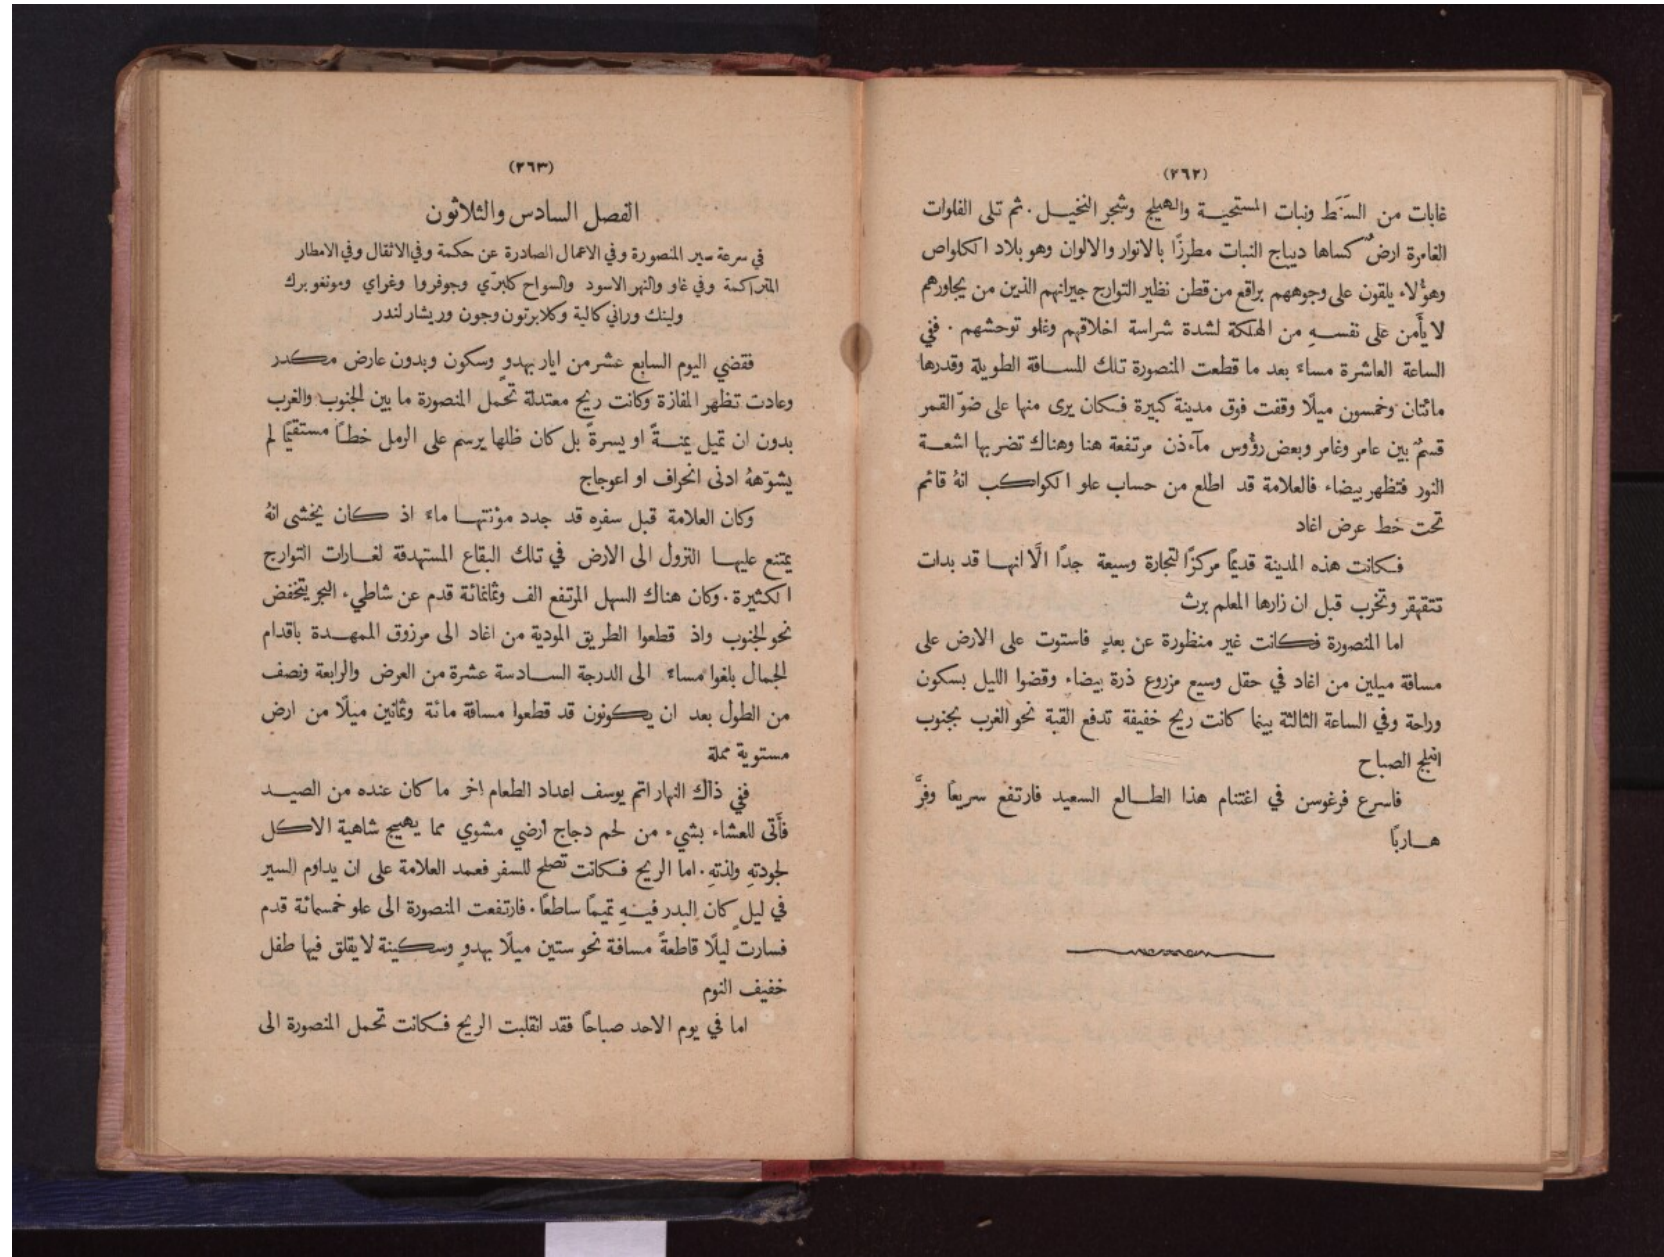 (٢٦٢)
غابات من السَنَط ونبات المستحية والهيلج وشجر النخيل. ثم تلى الفلوات
الغامرة ارضٌ كساها ديباج النبات مطرزًا بالانوار والالوان وهو بلاد الكلواص
وهؤلاء يلقون على وجوههم براقع من قطن نظير التوارج جيرانهم الذين من يجاورهم
لا يأَمن على نفسهِ من الهلكة لشدة شراسة اخلاقهم وغلو توحشهم. ففي
الساعة العاشرة مساءً بعد ما قطعت المنصورة تلك المسافة الطويلة وقدرها
مائتان وخمسون ميلًا وقفت فوق مدينة كبيرة فكان يرى منها على ضوّ القمر
قسمٌ بين عامر وغامر وبعض رؤوس مآءذن مرتفعة هنا وهناك تضربها اشعة
النور فتظهر بيضاء فالعلامة قد اطلع من حساب علو الكواكب انهُ قائم
تحت خط عرض اغاد
فكانت هذه المدينة قديمًا مركزًا لتجارة وسيعة جدًا الَّا انها قد بدات
تتقهقر وتخرب قبل ان زارها المعلم برث
اما المنصورة فكانت غير منظورة عن بعدٍ فاستوت على الارض على
مسافة ميلين من اغاد في حقل وسيع مزروع ذرة بيضاء وقضوا الليل بسكون
وراحة وفي الساعة الثالثة بينما كانت ريح خفيفة تدفع القبة نحو الغرب بجنوب
انبلج الصباح
فاسرع فرغوسن في اغتنام هذا الطالع السعيد فارتفع سريعًا وفرَّ
هاربًا
(٢٦٣)
الفصل السادس والثلاثون
في سرعة سير المنصورة وفي الاعمال الصادرة عن حكمة وفي الاثقال وفي الامطار
المتراكمة وفي غاو والنهر الاسود والسواح كلبرّي وجوفروا وغراي ومونغو برك
ولينك وراني كالية وكلابرتون وجون وريشار لندر
فقضي اليوم السابع عشر من ايار بهدوٍ وسكون وبدون عارض مكدر
وعادت تظهر المفازة وكانت ريح معتدلة تحمل المنصورة ما بين الجنوب والغرب
بدون ان تميل يمنةً او يسرةً بل كان ظلها يرسم على الرمل خطًا مستقيمًا لم
يشوّههُ ادنى انحراف او اعوجاج
وكان العلامة قبل سفره قد جدد مؤنتها ماءً اذ كان يخشى انهُ
يمتنع عليها النزول الى الارض في تلك البقاع المستهدفة لغارات التوارج
الكثيرة. وكان هناك السهل المرتفع الف وثمانمائة قدم عن شاطيء البحر يتخفض
نحو الجنوب واذ قطعوا الطريق المودية من اغاد الى مرزوق الممهدة باقدام
الجمال بلغوا مساءً الى الدرجة السادسة عشرة من العرض والرابعة ونصف
من الطول بعد ان يكونون قد قطعوا مسافة مائة وثمانين ميلًا من ارض
مستوية مملة
ففي ذاك النهار اتم يوسف اعداد الطعام اخر ما كان عنده من الصيد
فأَتى للعشاء بشيء من لحم دجاج ارضي مشوي مما يهيج شاهية الاكل
لجودتهِ ولذتهِ. اما الريح فكانت تصلح للسفر فعمد العلامة على ان يداوم السير
في ليلٍ كان البدر فيهِ تميمًا ساطعًا. فارتفعت المنصورة الى علو خمسمائة قدم
فسارت ليلًا قاطعةً مسافة نحو ستين ميلًا بهدوٍ وسكينة لا يقلق فيها طفل
خفيف النوم
اما في يوم الاحد صباحًا فقد انقلبت الريح فكانت تحمل المنصورة الى